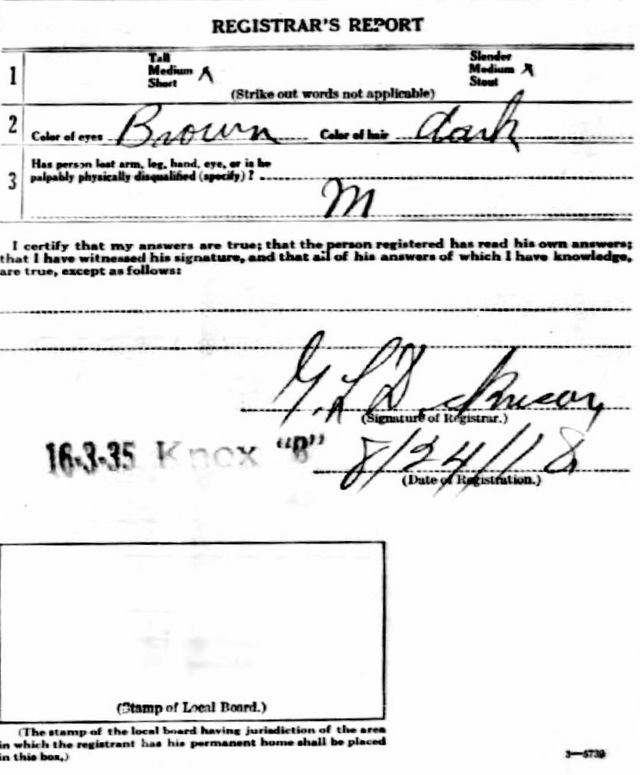 REGISTRAR'S REPORT
1 Tall Slender
Medium x Medium x
Short Stout
(Strike out words not applicable)
2 Color of eyes Brown Color of hair dark
3 Has person lost arm, leg, hand, eye, or is he
palpably physically disqualified (specify)?
I certify that my answers are true; that the person registered has read his own answers;
that I have witnessed his signature, and that all of his answers of which I have knowledge,
are true, except as follows:
(Signature of Registrar.)
16-3-35 Knox "B" 8/24/18
(Date of Registration.)
(Stamp of Local Board.)
(The stamp of the local board having jurisdiction of the area
in which the registrant has his permanent home shall be placed
in this box.)
3—5739